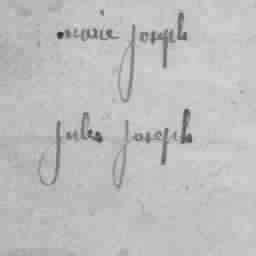 marie joseph
jules joseph